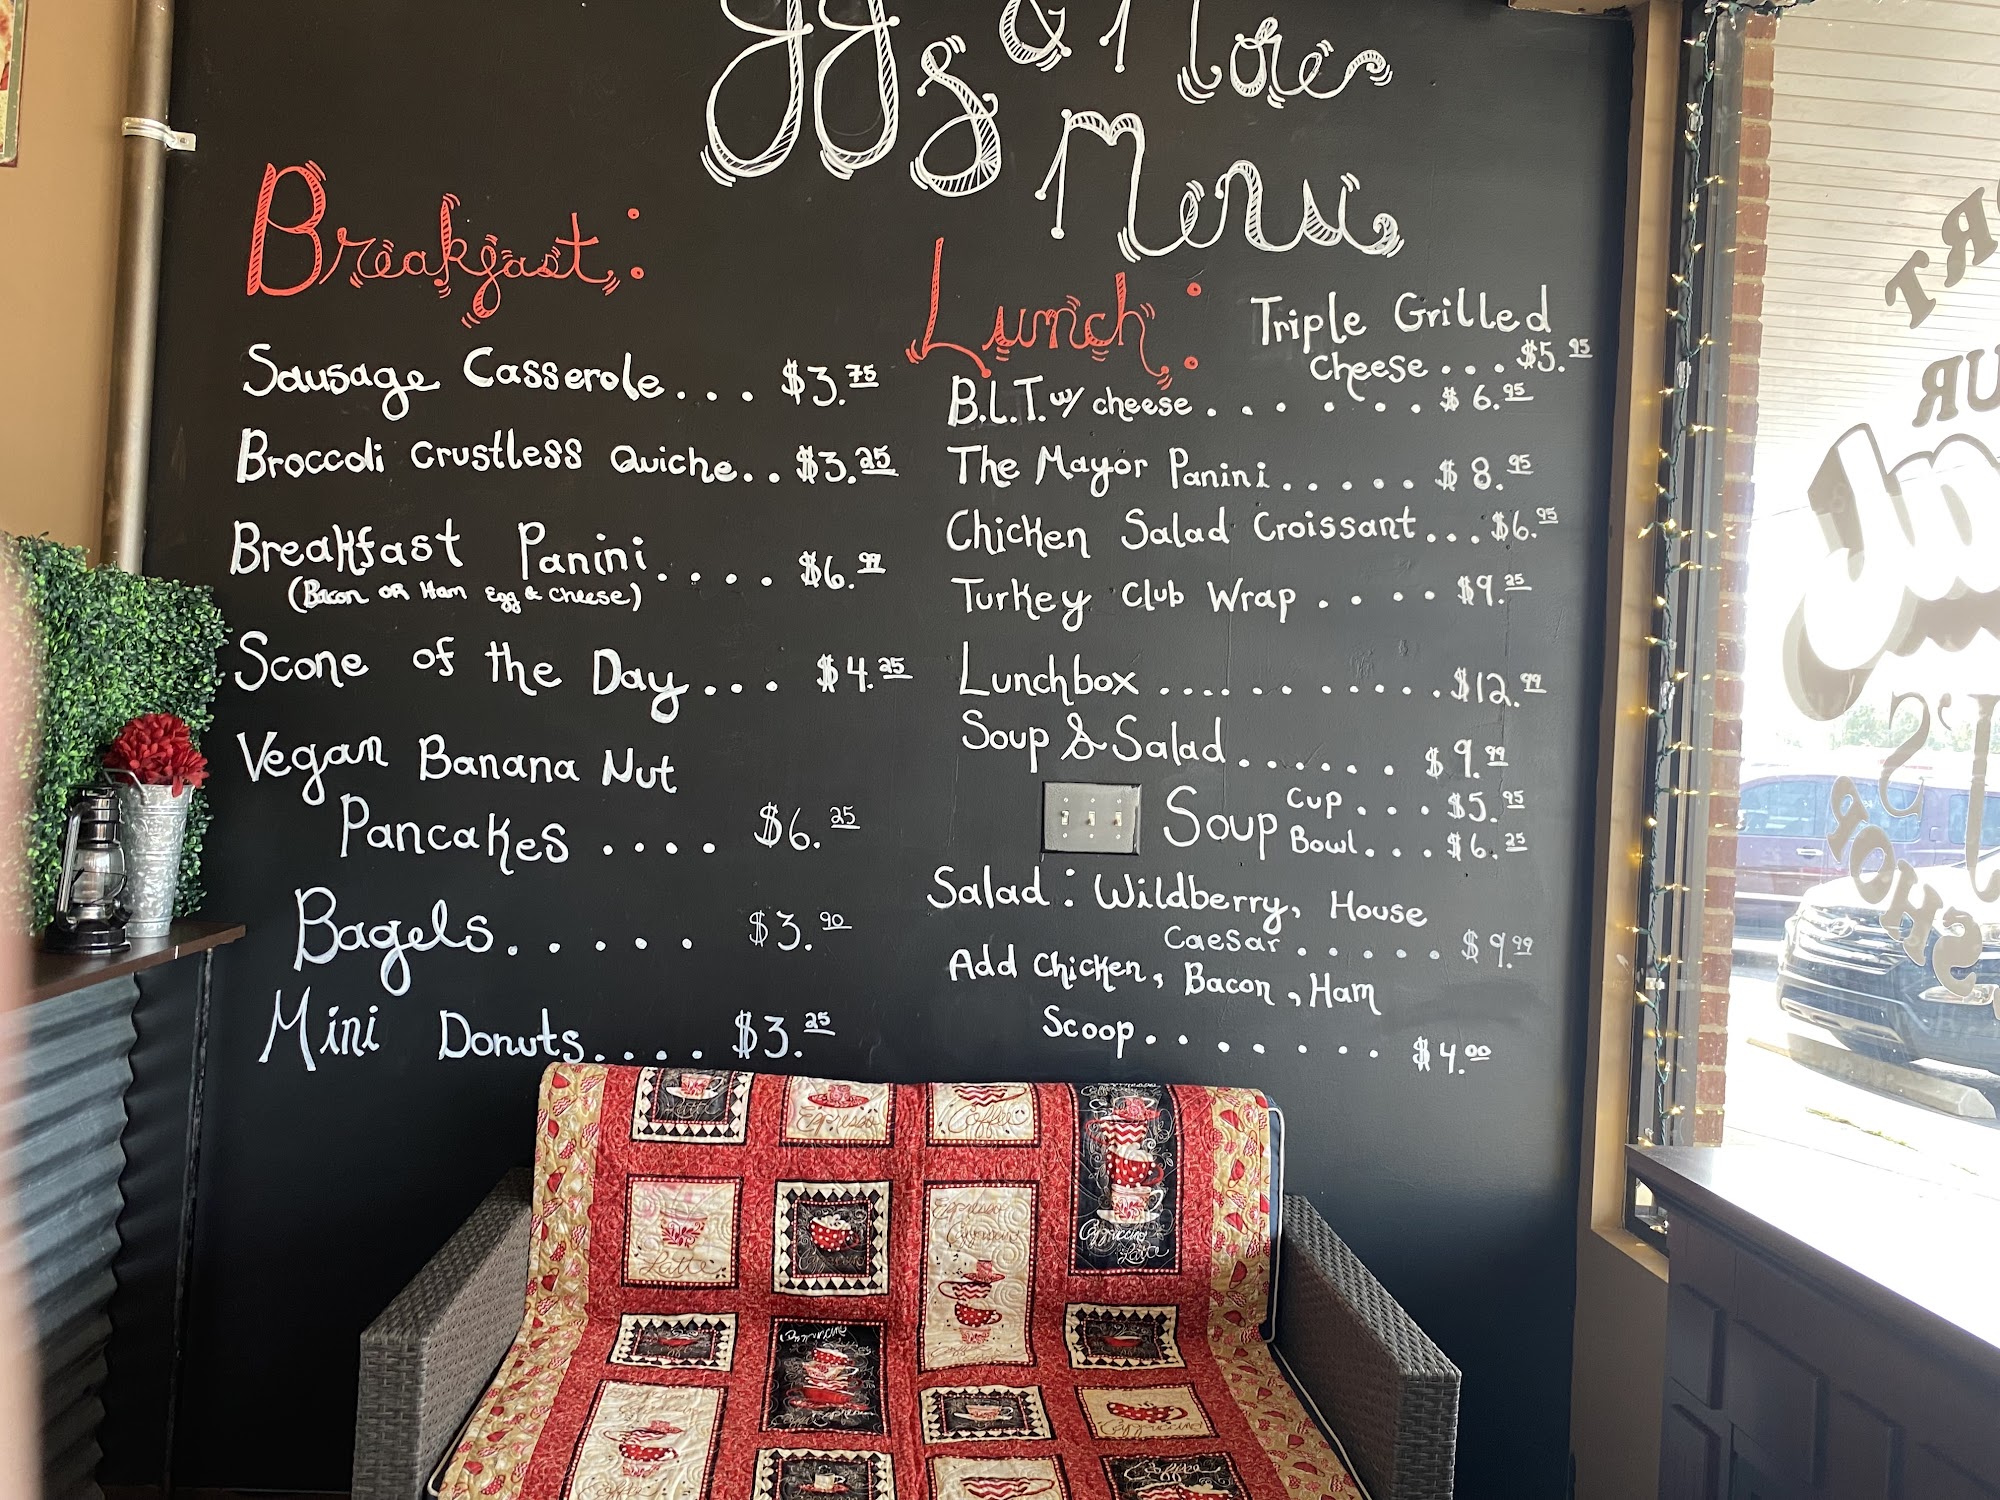 ggs & More
Menu
Breakfast:
Sausage Casserole... $3.75
Broccoli Crustless Quiche.. $3.25
Breakfast Panini.... $6.99
(Bacon OR Ham Egg & Cheese)
Scone of the Day... $4.25
Vegan Banana Nut
Pancakes .... $6.25
Bagels...... $3.90
Mini Donuts.... $3.25
Lunch:
Triple Grilled
Cheese... $5.95
B.L.T. w/ cheese...... $6.95
The Mayor Panini..... $8.95
Chicken Salad Croissant... $6.95
Turkey Club Wrap.... $9.25
Lunchbox........... $12.99
Soup & Salad...... $9.99
Soup Cup... $5.95
Bowl... $6.25
Salad: Wildberry, House
Caesar..... $9.99
Add Chicken, Bacon, Ham
Scoop....... $4.00
Latte
Espresso
Coffee
Cappuccino
Latte
Latte
'S
SHOP